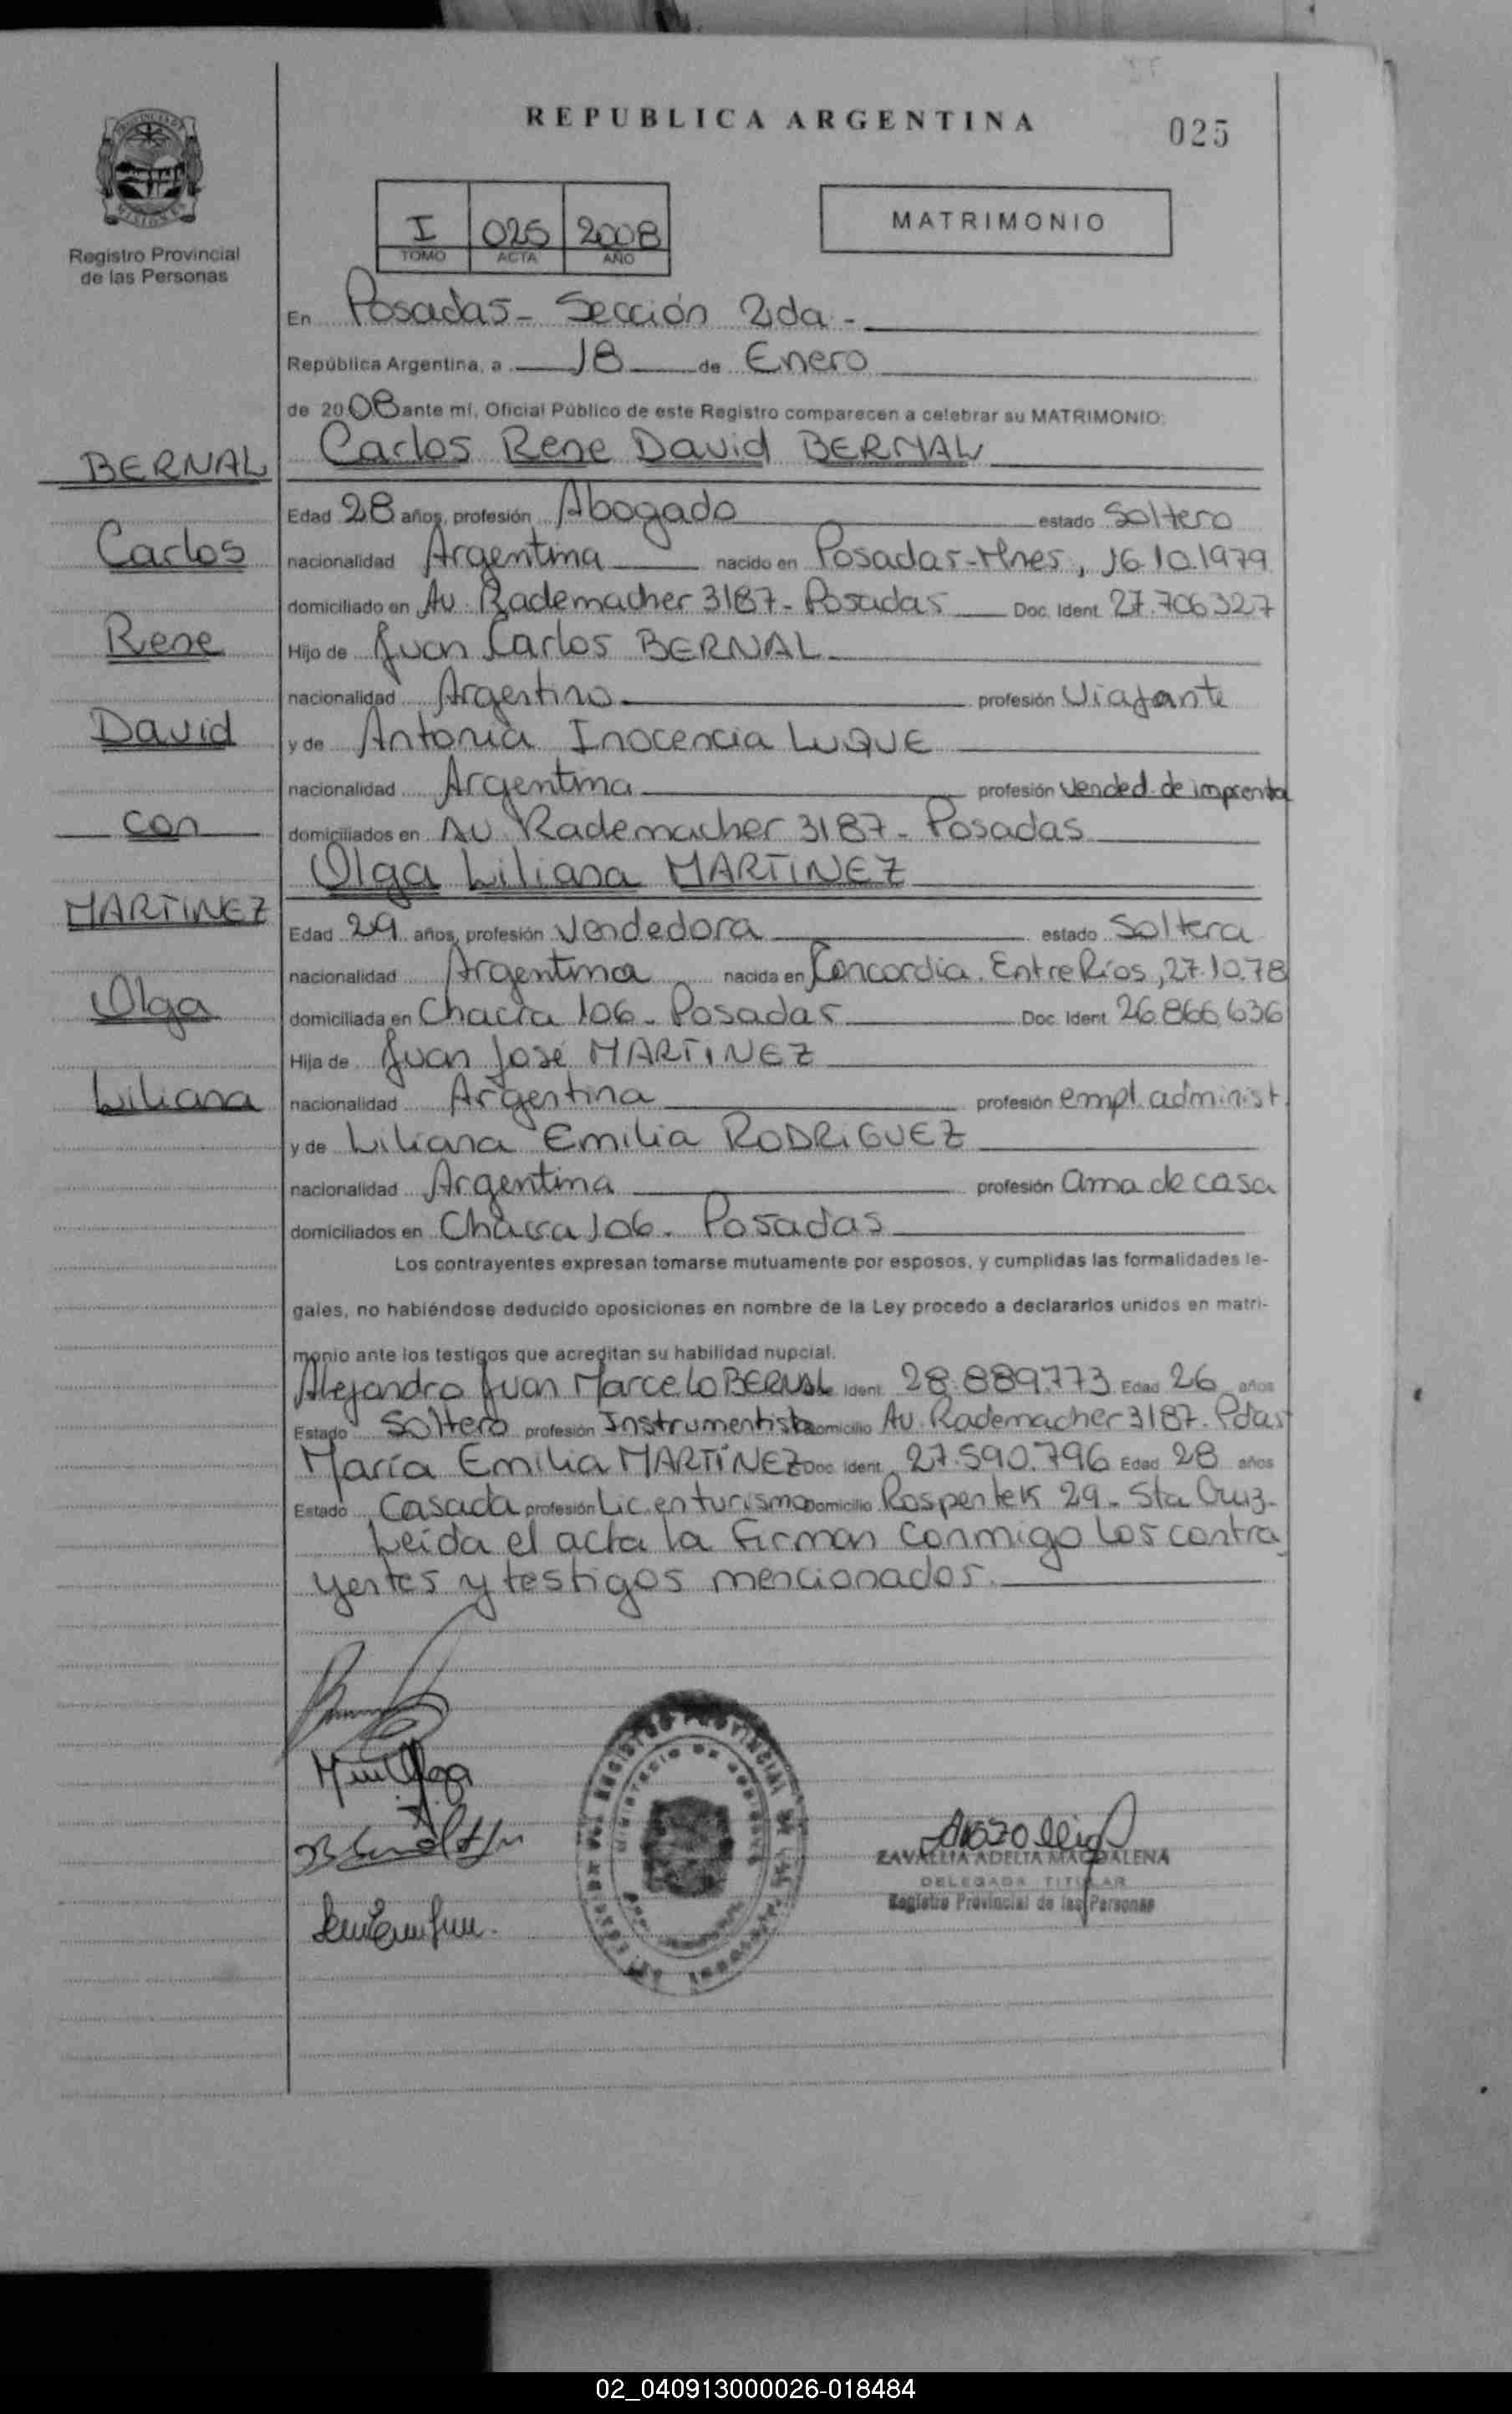 REPUBLICA ARGENTINA
025
I 025 2008
TOMO ACTA AÑO
MATRIMONIO
Registro Provincial
de las Personas
En Posadas - Sección 2da -
República Argentina, a 18 de Enero
de 2008 ante mí, Oficial Público de este Registro comparecen a celebrar su MATRIMONIO:
Carlos Rene David BERNAL
Edad 28 años, profesión Abogado estado Soltero
nacionalidad Argentina nacido en Posadas-Mnes, 16.10.1979
domiciliado en Av. Rademacher 3187 - Posadas Doc. Ident. 27.706.327
Hijo de Juan Carlos BERNAL
nacionalidad Argentino profesión Viajante
y de Antonia Inocencia LUQUE
nacionalidad Argentina profesión Vended. de imprenta
domiciliados en Av. Rademacher 3187 - Posadas
Olga Liliana MARTINEZ
Edad 29 años, profesión Vendedora estado Soltera
nacionalidad Argentina nacida en Concordia. Entre Ríos, 27.10.78
domiciliada en Chacra 106 - Posadas Doc. Ident. 26.866.636
Hija de Juan José MARTINEZ
nacionalidad Argentina profesión empl. administ.
y de Liliana Emilia RODRIGUEZ
nacionalidad Argentina profesión ama de casa
domiciliados en Chacra 106 - Posadas
Los contrayentes expresan tomarse mutuamente por esposos, y cumplidas las formalidades le-
gales, no habiéndose deducido oposiciones en nombre de la Ley procedo a declararlos unidos en matri-
monio ante los testigos que acreditan su habilidad nupcial.
Alejandro Juan Marcelo BERNAL Ident. 28.889.773 Edad 26 años
Estado Soltero profesión Instrumentista Domicilio Av. Rademacher 3187. Pdas
María Emilia MARTÍNEZ Doc. Ident. 27.590.796 Edad 28 años
Estado Casada profesión Lic. en turismo Domicilio Rospentek 29 - Sta Cruz.
Leída el acta la firman conmigo los contra
yentes y testigos mencionados.
BERNAL
Carlos
Rene
David
con
MARTINEZ
Olga
Liliana
ZAVALLIA ADELIA MAGDALENA
DELEGADA TITULAR
Registro Provincial de las Personas
02_040913000026-018484